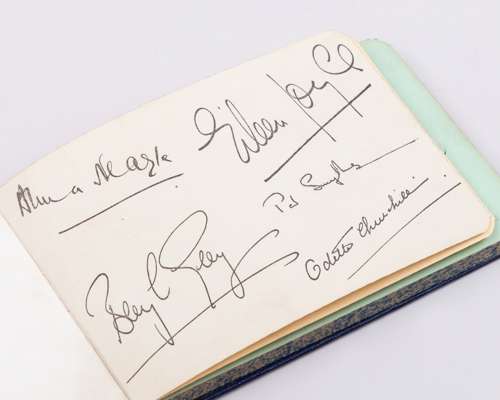 Anna Neagle
Eileen Joyce
Pat Smythe
Beryl Grey
Odette Churchill